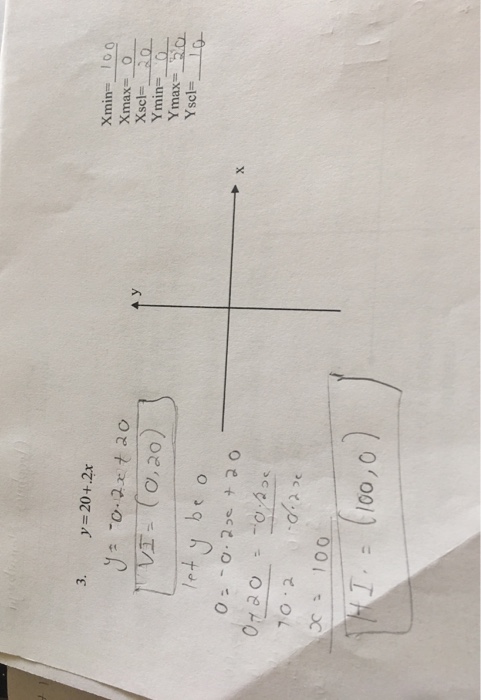 3. y = 20 + .2x
y = -0.2x + 20
VI = (0, 20)
let y be 0
0 = -0.2x + 20
0+20 = -0.2x
-0.2x
x = 100
HI. = (100, 0)
y
x
Xmin= 100
Xmax= 0
Xscl= 20
Ymin= 0
Ymax=
Yscl= 10